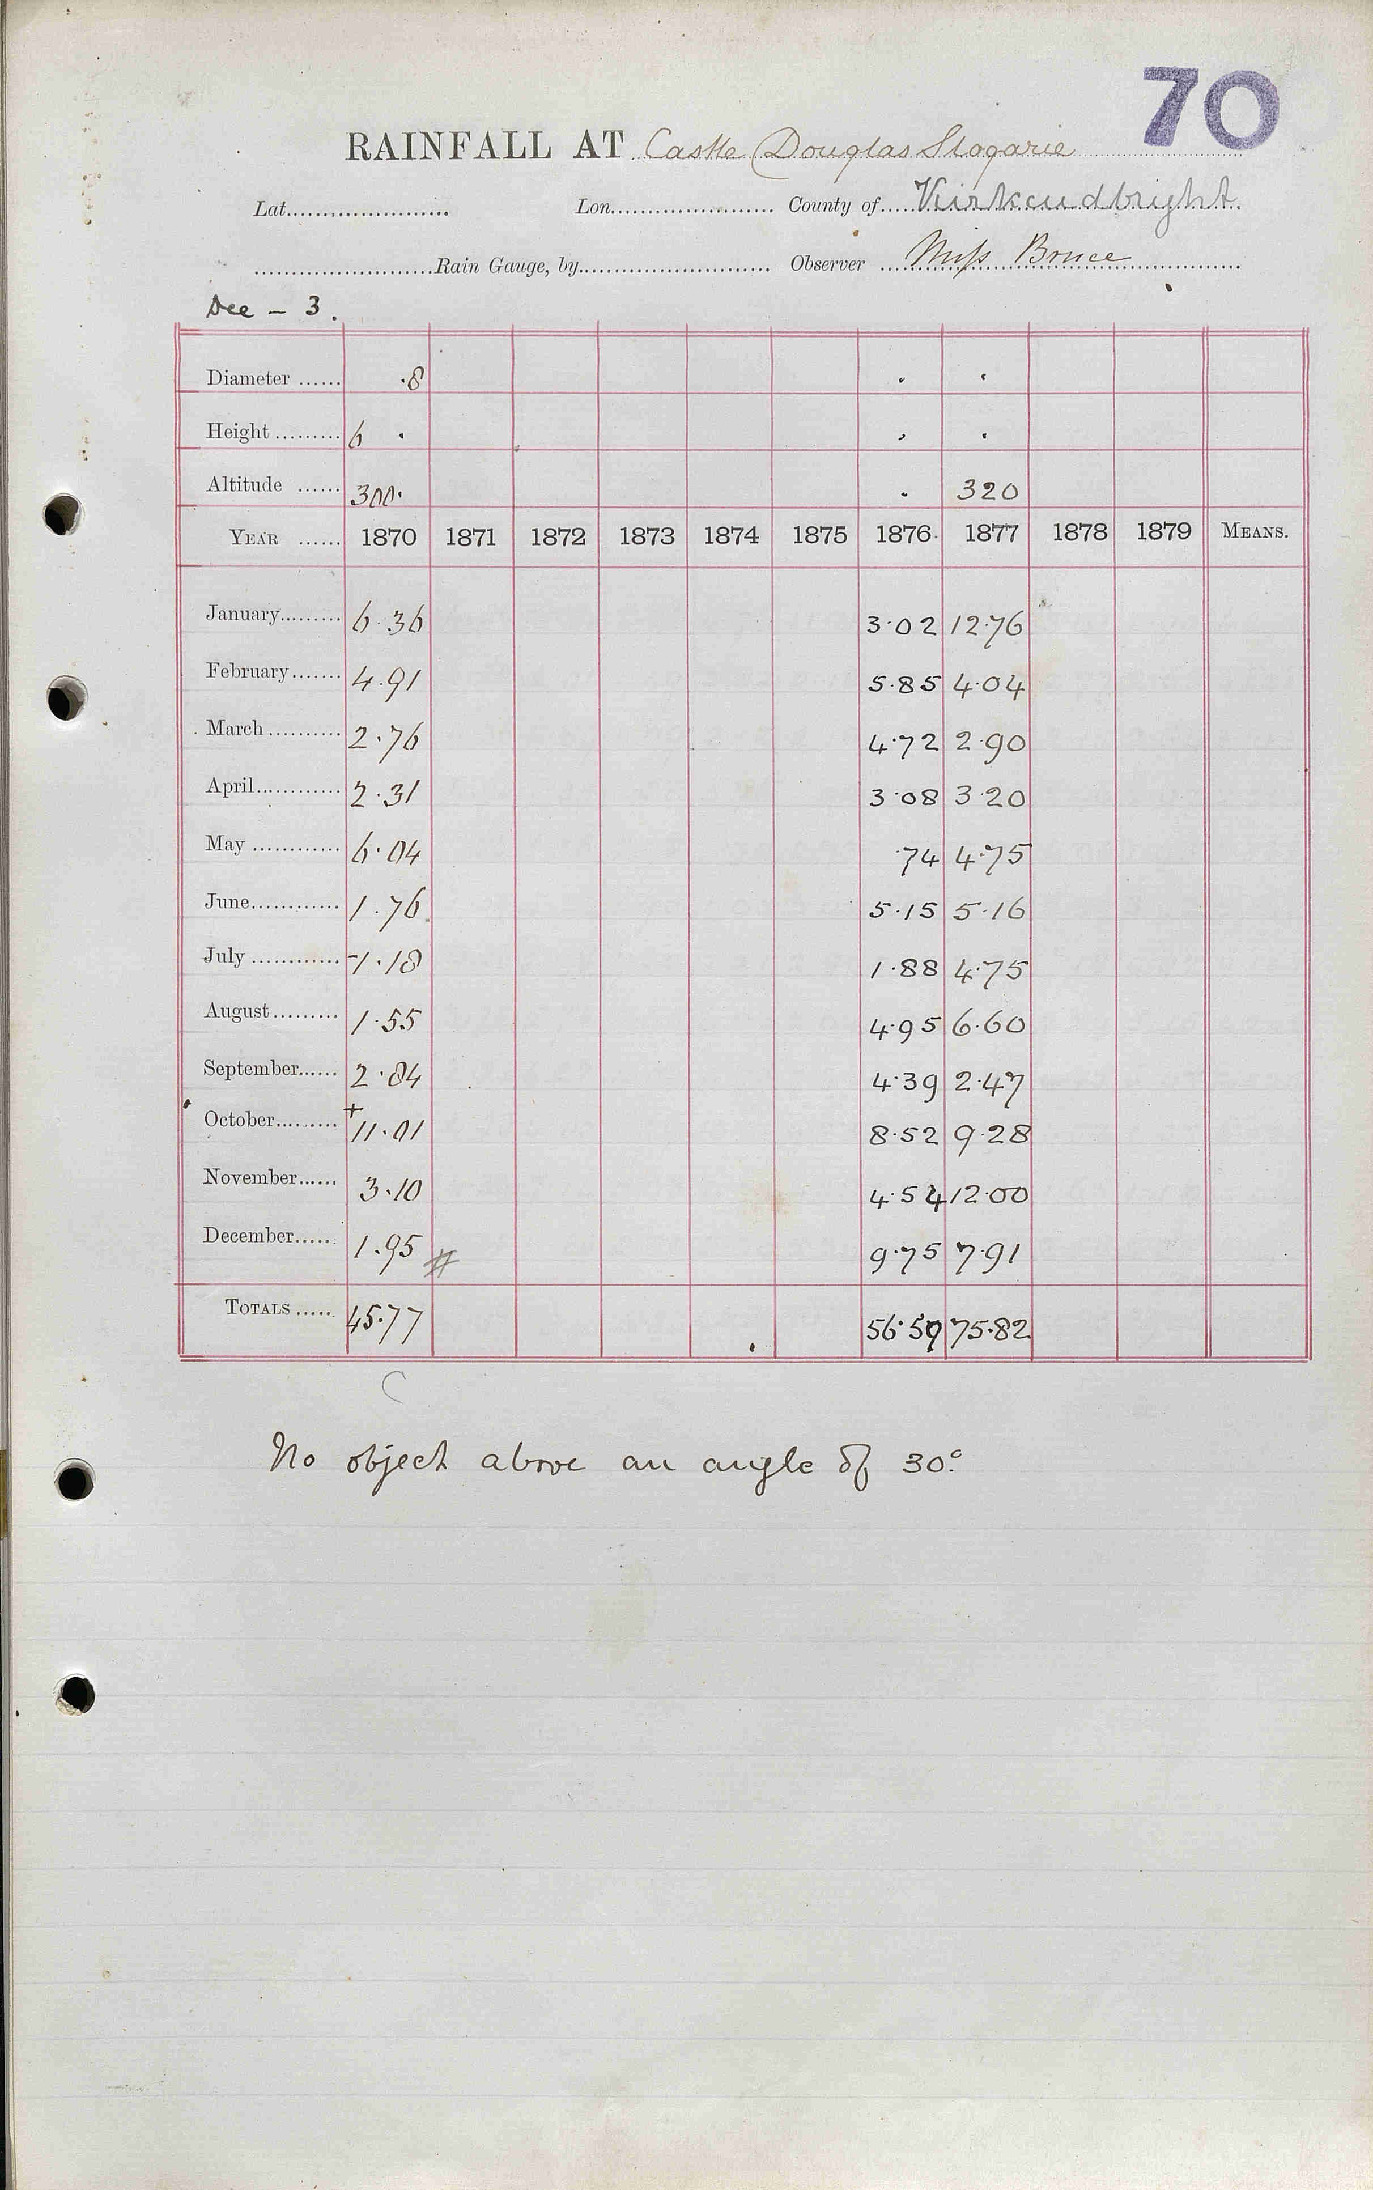 70
RAINFALL AT Castle Douglas Slogarie
Lat. Lon. County of Kirkcudbright
Rain Gauge, by Observer Miss Bruce
Dee - 3.
Diameter ...... .8 . .
Height ......... 6 . . .
Altitude ...... 300. . 320
YEAR ...... 1870 1871 1872 1873 1874 1875 1876 1877 1878 1879 MEANS.
January......... 6.36 3.02 12.76
February....... 4.91 5.85 4.04
March .......... 2.76 4.72 2.90
April............ 2.31 3.08 3.20
May ............ 6.04 .74 4.75
June............ 1.76 5.15 5.16
July ............ 1.18 1.88 4.75
August......... 1.55 4.95 6.60
September...... 2.84 4.39 2.47
October......... +11.01 8.52 9.28
November...... 3.10 4.54 12.00
December..... 1.95 # 9.75 7.91
TOTALS ..... 45.77 56.59 75.82
No object above an angle of 30°.